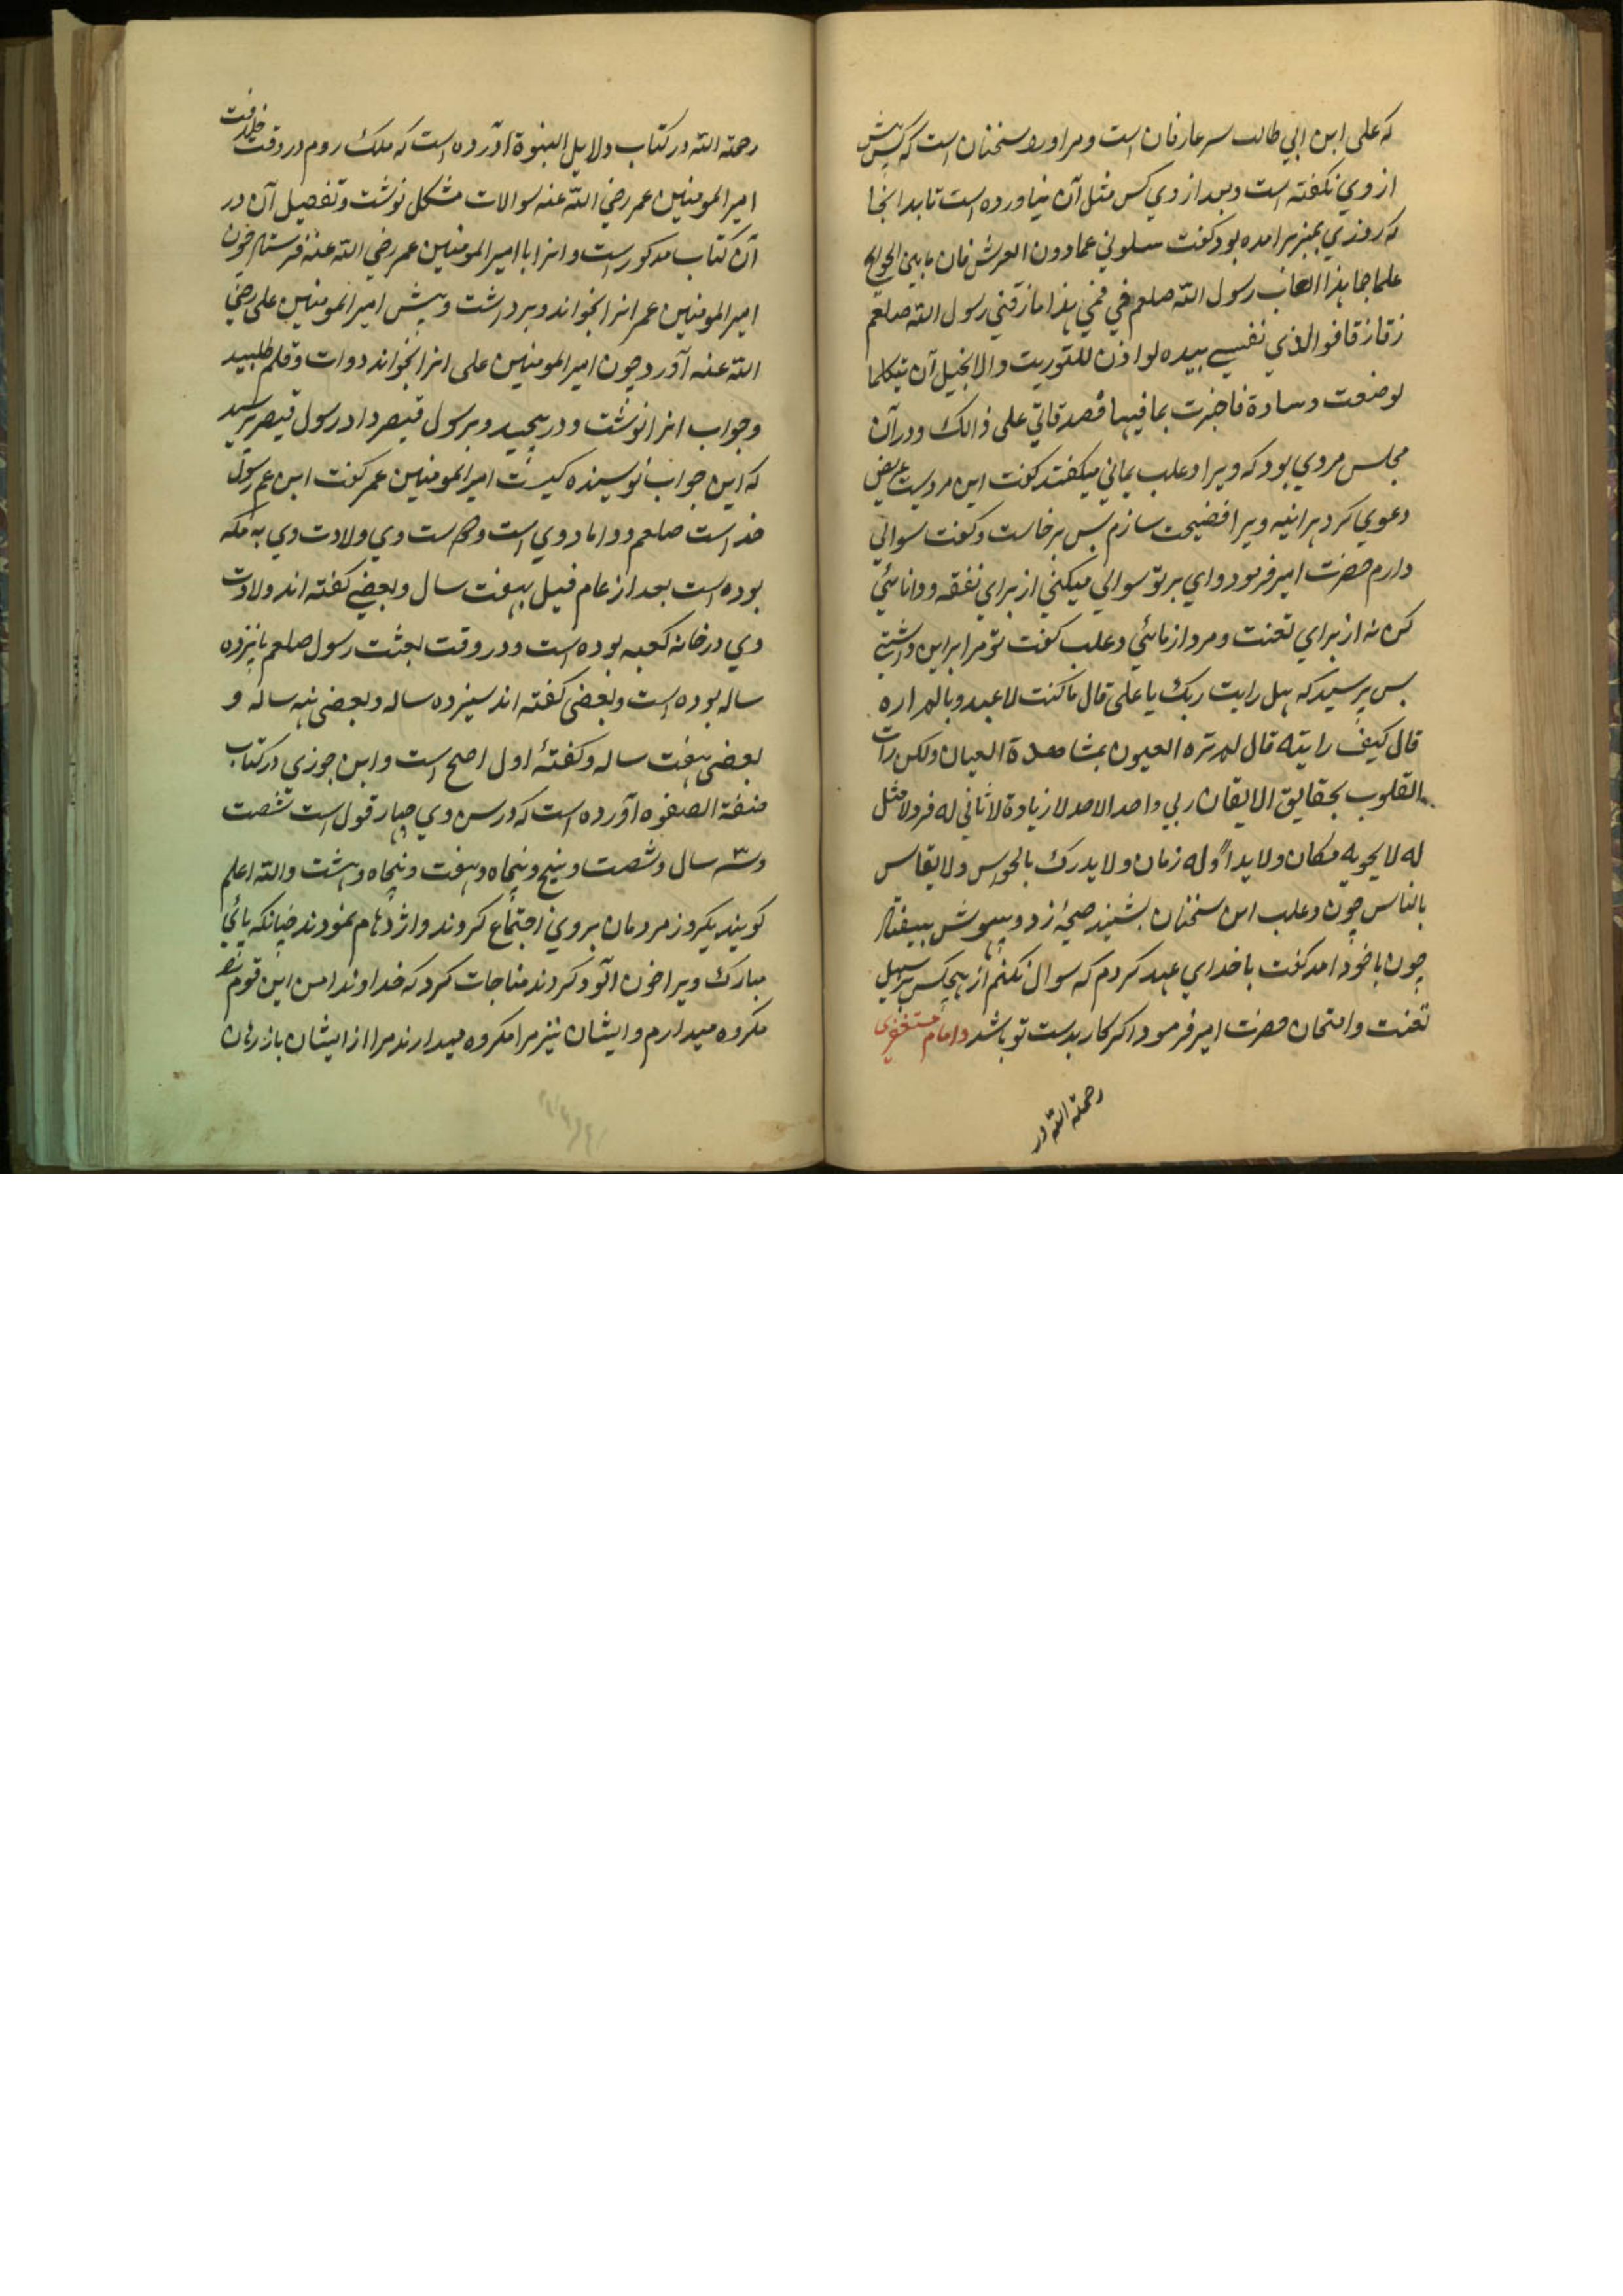 که علی ابن ابي طالب سر عارفان است و مر او را سخنان است که کس پیش
از وي نکفته است و بعد از وي کس مثل آن نیاورده است تا بدانجا
که روزي بمنبر برامده بود کفت سلوني عما دون العرش فان ما بین الجوانح
علما جما هذا لعاب رسول الله صلعم في فمي هذا ما زقني رسول الله صلعم
زقا زقا فو الذي نفسي بیده لو اذن للتوریت والانجیل آن یتکلما
لوضعت وسادة فاخبرت بما فیهما فصدقاني علی ذالک و در آن
مجلس مردي بود که ویرا دعلب یماني میکفتند کفت این مردیست عریض
دعوي کرد هر اینه ویرا فضیحت سازم بس برخاست و کفت سوالي
دارم حضرت امیر فرمود واي بر تو سوالي میکني از براي تفقه و دانائي
کن نه از براي تعنت و مرد ازمائي دعلب کفت تو مرا بر این داشتي
بس پرسید که هل رایت ربک یا علی قال ما کنت لاعبد ربا لم اره
قال کیف رایته قال لم تره العیون بمشاهدة العیان ولکن رات
القلوب بحقایق الایقان ربي واحد الاحد لا زیادة لا ثاني له فرد لا مثل
له لا یحویه مکان ولا یداوله زمان ولا یدرک بالحواس ولا یقاس
بالناس چون دعلب این سخنان بشنید صیحهٔ زد و بیهوش بیفتاد
چون باخود امد کفت با خداي عهد کردم که سوال نکنم از هیچکس بر سبیل
تعنت و امتحان حضرت امیر فرمود اکر کار بدست تو باشد و امام مستغفری
رحمة الله در
رحمة الله در کتاب دلایل النبوة آورده است که ملک روم در وقت خلافت
امیر المومنین عمر رضي الله عنه سوالات مشکل نوشت و تفصیل آن در
آن کتاب مذکور است و انرا با امیر المومنین عمر رضي الله عنه فرستاد چون
امیر المومنین عمر انرا بخواند و برداشت و پیش امیر المومنین علی رضي
الله عنه آورد چون امیر المومنین علی انرا بخواند دوات و قلم طلبید
و جواب انرا نوشت و در پیچید و برسول قیصر داد رسول قیصر پرسید
که این جواب نویسنده کیست امیر المومنین عمر کفت ابن عم رسول
خداست صلعم و داماد وي است و ولادت وي به مکه
بوده است بعد از عام فیل بهفت سال و بعضي کفته اند ولادت
وي در خانه کعبه بوده است و در وقت بعثت رسول صلعم پانزده
ساله بوده است و بعضي کفته اند سیزده ساله و بعضي نه ساله و
بعضي هفت ساله و کفتهٔ اول اصح است و ابن جوزي در کتاب
صفة الصفوه آورده است که در سن وي چهار قول است شصت
و سه سال و شصت و پنج و پنجاه و هفت و پنجاه و هشت والله اعلم
کویند یکروز مردمان بروي اجتماع کردند و ازدهام نمودند چنانکه پائي
مبارک ویرا خون الود کردند مناجات کرد که خداوندا من این قوم
مکروه میدارم و ایشان نیز مرا مکروه میدارند مرا از ایشان باز رهان